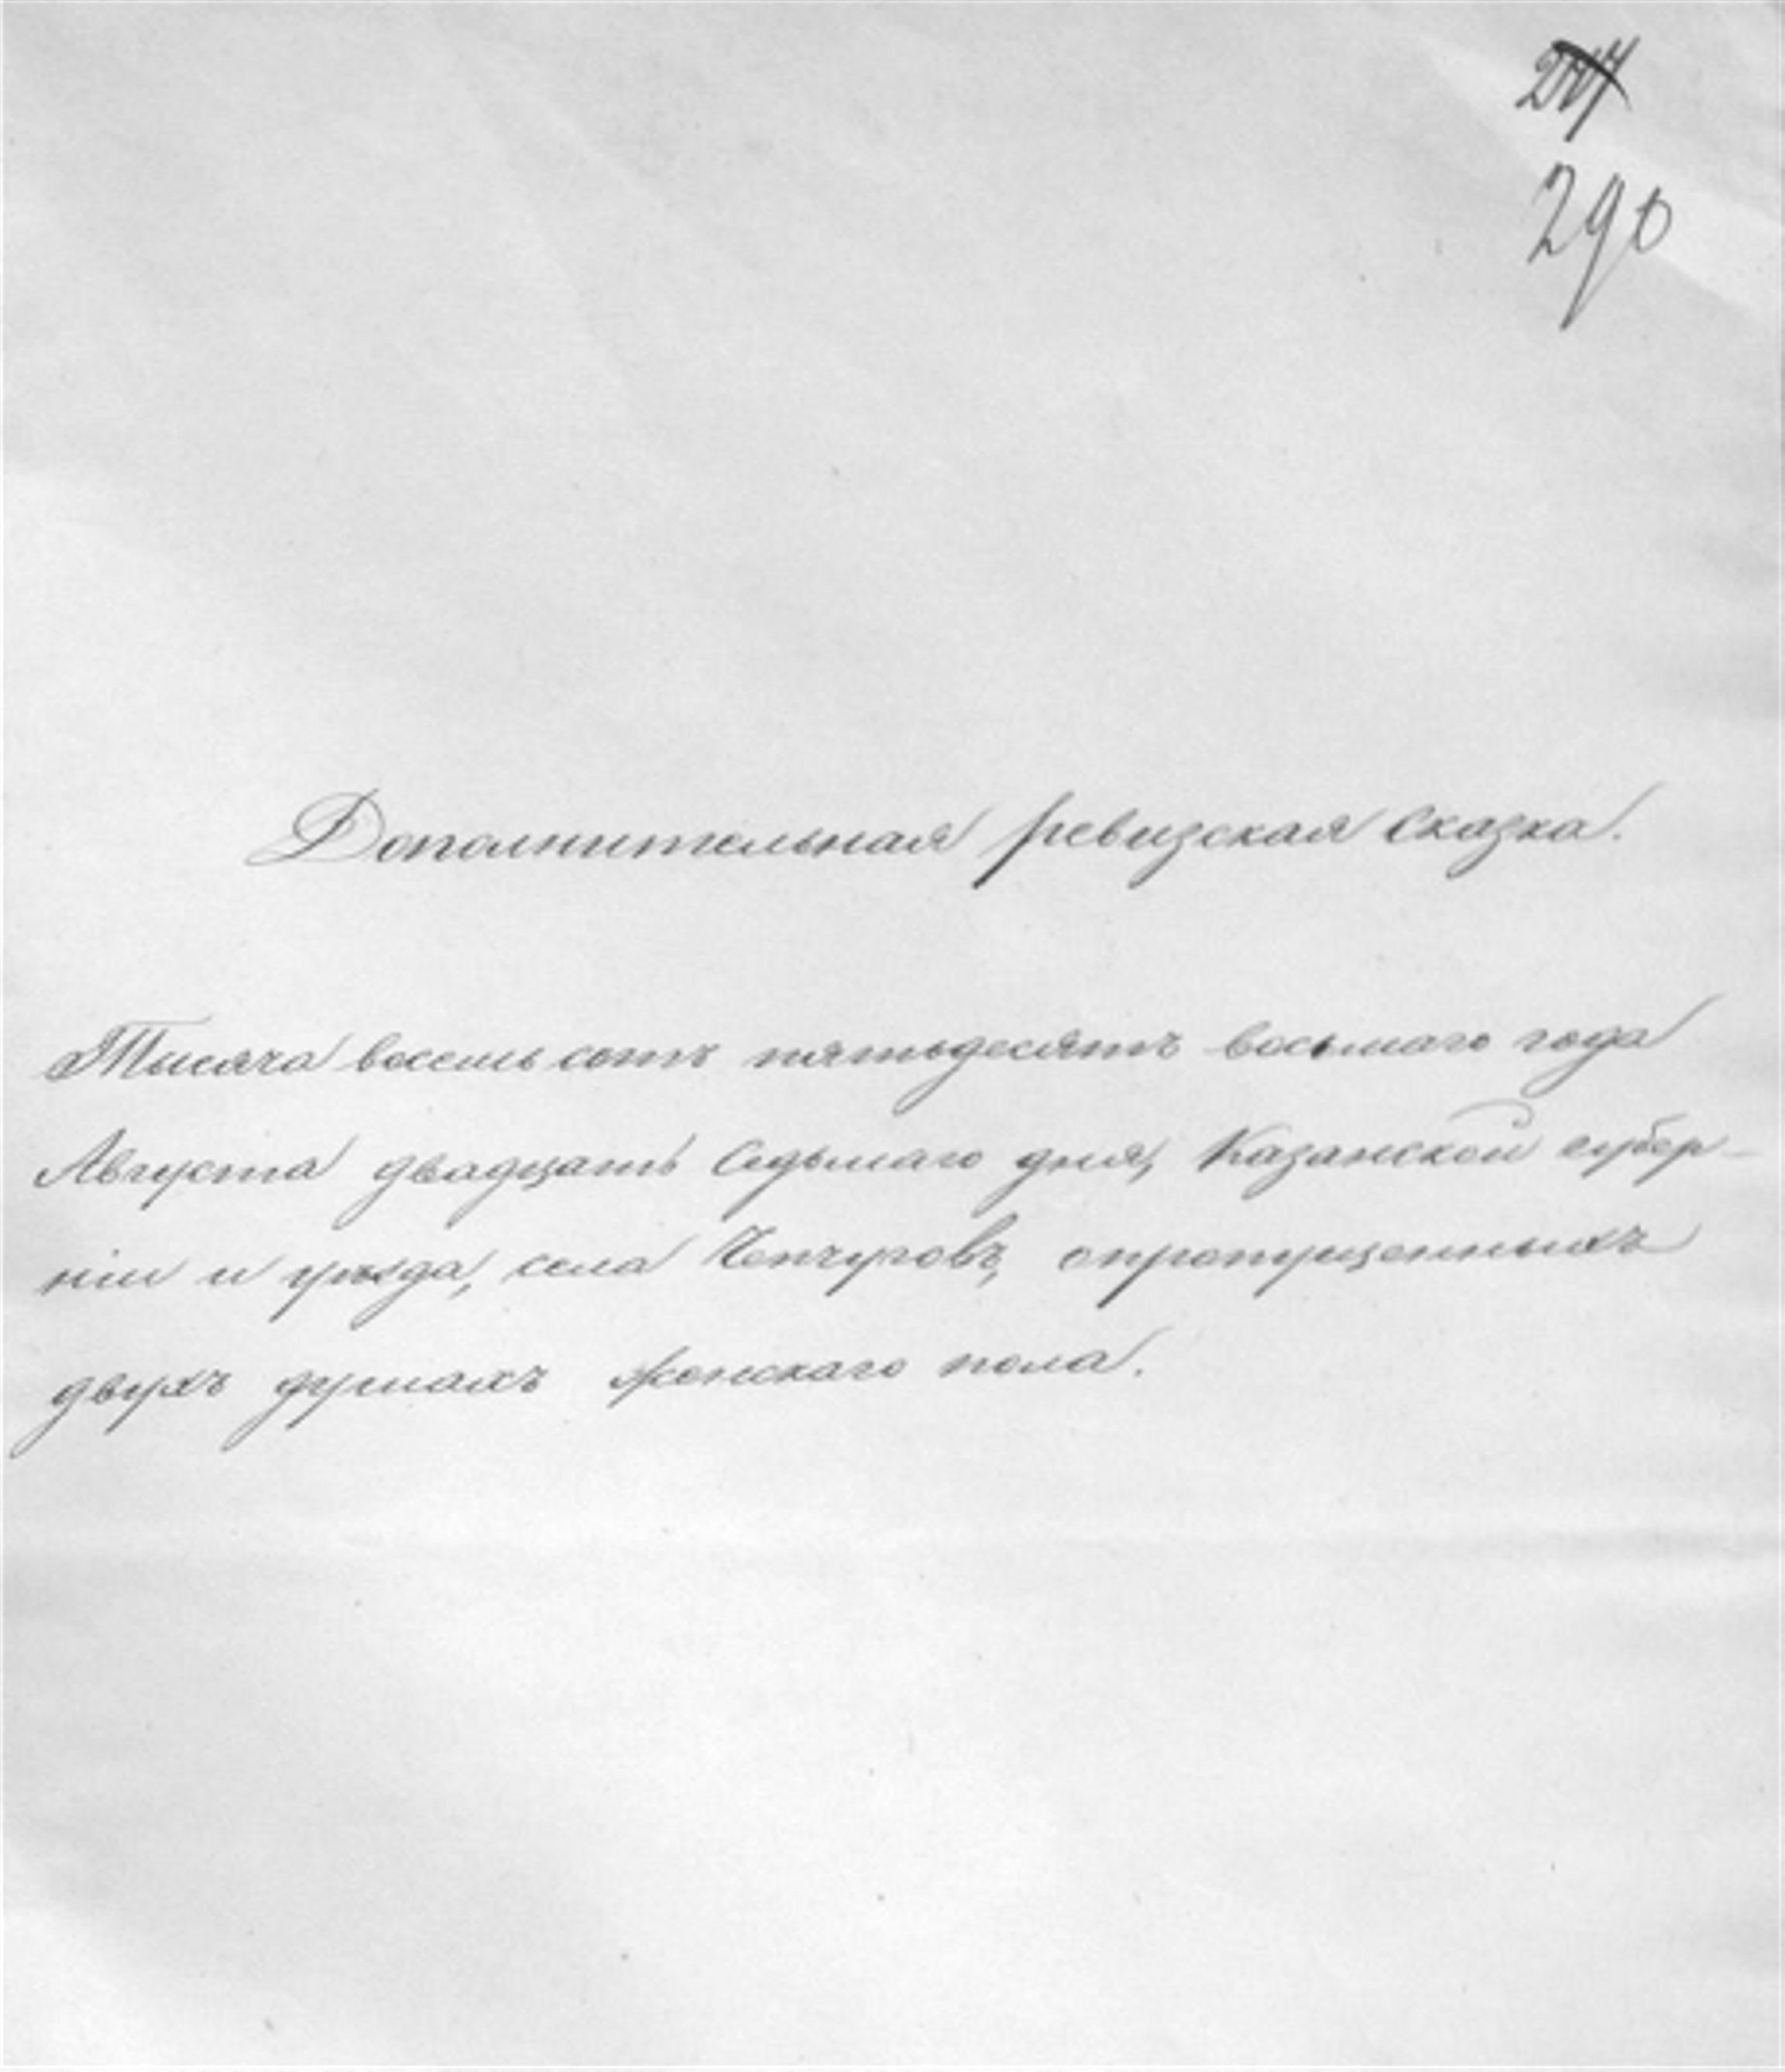 290
Дополнительная ревизская сказка.
Тысяча восемь сотъ пятьдесятъ восьмаго года
Августа двадцать седьмаго дня, Казанской губер-
ніи и уѣзда, села Чепчуговъ, опропущенныхъ
двухъ душахъ женскаго пола.